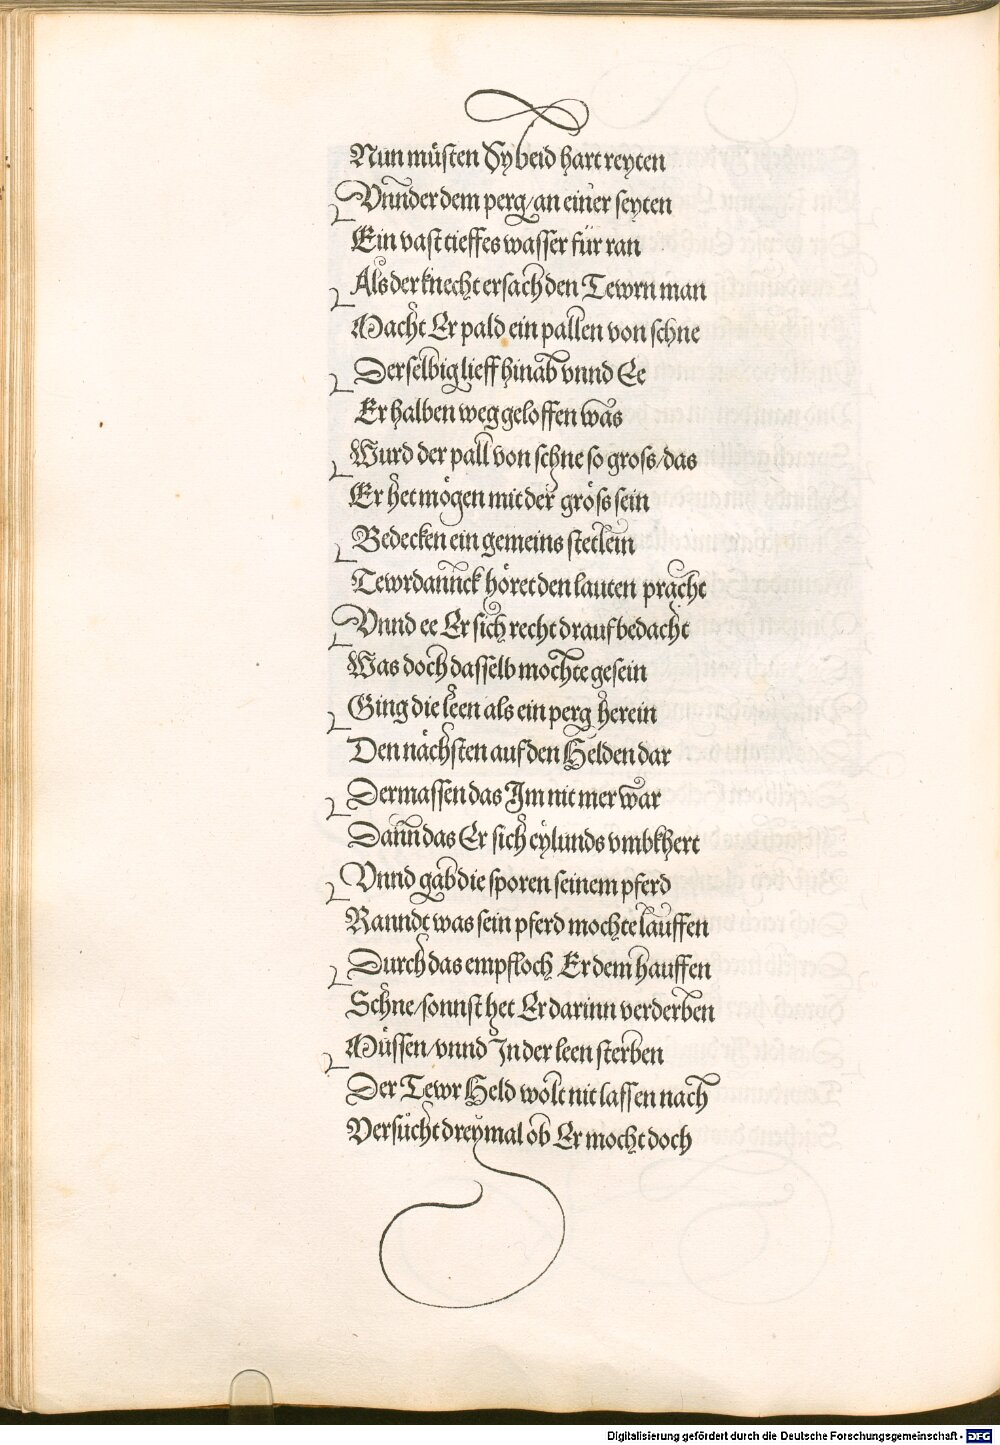 Nun müsten Sy beid hart reyten
Vnnder dem perg/an einer seyten
Ein vast tieffes wasser für ran
Als der knecht ersach den Tewrn man
Macht Er pald ein pallen von schne
Derselbig lieff hinab vnnd Ee
Er halben weg geloffen was
Wurd der pall von schne so gross/das
Er het mögen mit der grösß sein
Bedecken ein gemeins stetlein
Tewrdannck höret den lauten pracht
Vnnd ee Er sich recht drauf bedacht
Was doch dasselb mochte gesein
Ging die leen als ein perg herein
Den nächsten auf den Helden dar
Dermassen das Im nit mer war
Dann das Er sich eylunds vmbkhert
Vnnd gab die sporen seinem pferd
Ranndt was sein pferd mochte lauffen
Durch das empfloch Er dem hauffen
Schne/sonnst het Er darinn verderben
Müssen/vnnd In der leen sterben
Der Tewr Held wolt nit lassen nach
Versücht dreymal ob Er mocht doch
Digitalisierung gefördert durch die Deutsche Forschungsgemeinschaft - DFG